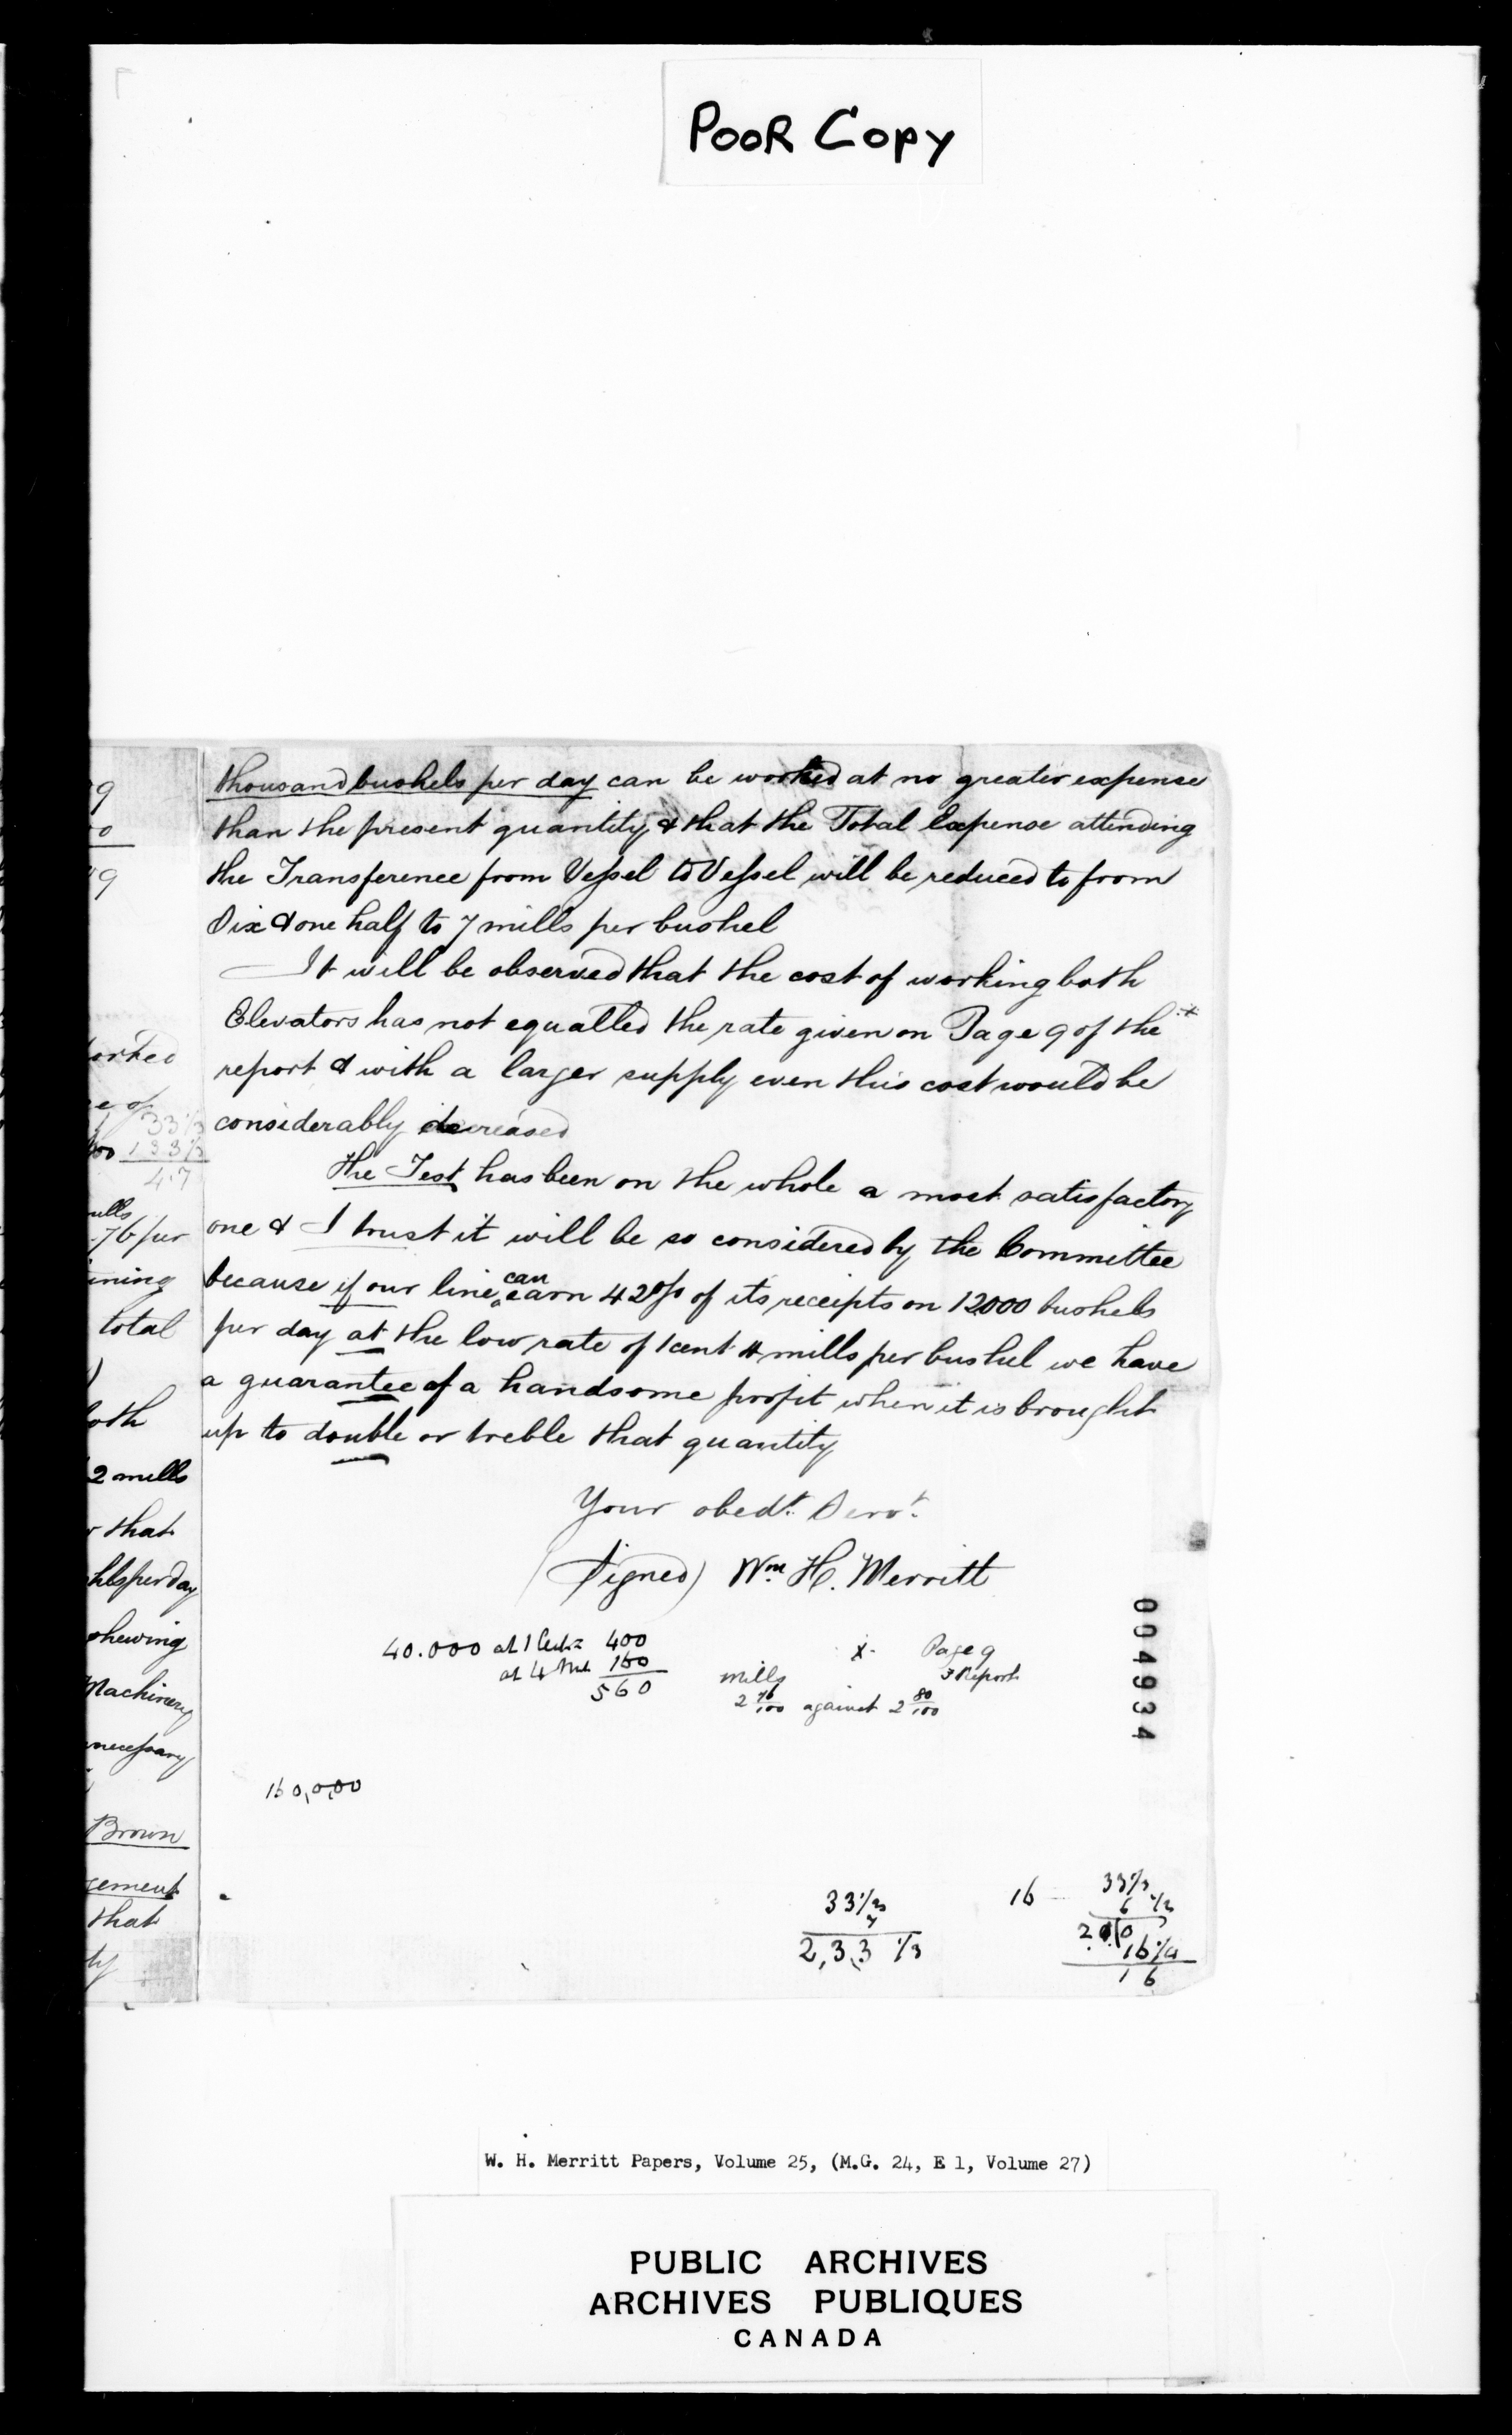 Poor Copy
thousand bushels per day can be worked at no greater expense
than the present quantity & that the Total Expense attending
the Transference from Vessel to Vessel will be reduced to from
Six & one half to 7 mills per bushel
It will be observed that the cost of working both
Elevators has not equalled the rate given on Page 9 of the
report & with a larger supply even this cost would be
considerably decreased
The Test has been on the whole a most satisfactory
one & I trust it will be so considered by the Committee
because if our line can earn 42 % of its receipts on 12000 bushels
per day at the low rate of 1 cent 4 mills per bushel we have
a guarantee of a handsome profit when it is brought
up to double or treble that quantity
Your obedt. Servt.
(Signed) Wm H. Merritt
40.000 at 1 Cent = 400
at 4 160
560
x. Page 9
Report
mills
2 76/100 against 2 80/100
160,000
33 1/3
7
2,33 1/3
16
33 1/3
6 1/2
200
16
16
9
0
19
orked
e of
33 1/3
133 1/3
47
mills
76 per
ining
total
both
2 mills
r that
hls per day
shewing
Machinery
necessary
Brown
gement
that
ty
004934
W. H. Merritt Papers, Volume 25, (M.G. 24, E 1, Volume 27)
PUBLIC ARCHIVES
ARCHIVES PUBLIQUES
CANADA